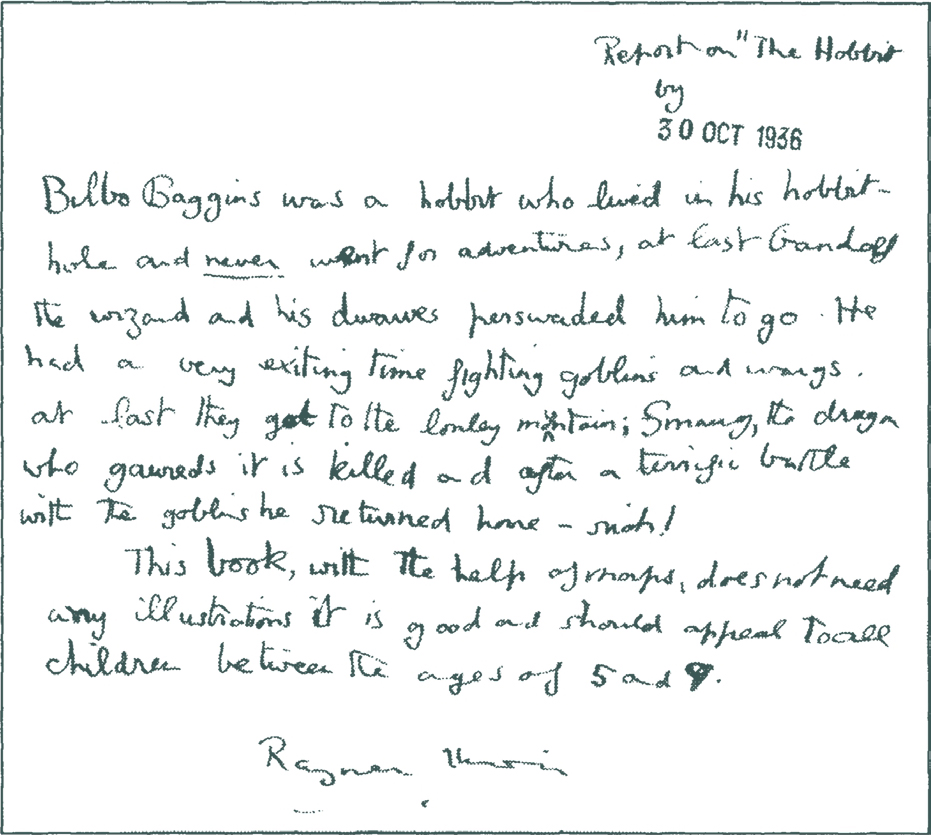 Report on "The Hobbit
by
30 OCT 1936
Bilbo Baggins was a hobbit who lived in his hobbit-
hole and never went for adventures, at last Gandalf
the wizard and his dwarves perswaded him to go. He
had a very exiting time fighting goblins and wargs.
at last they got to the lonley mountain; Smaug, the dragon
who gawreds it is killed and after a terrific battle
with the goblins he returned home – rich!
This book, with the help of maps, does not need
any illustrations it is good and should appeal to all
children between the ages of 5 and 9.
Rayner Unwin